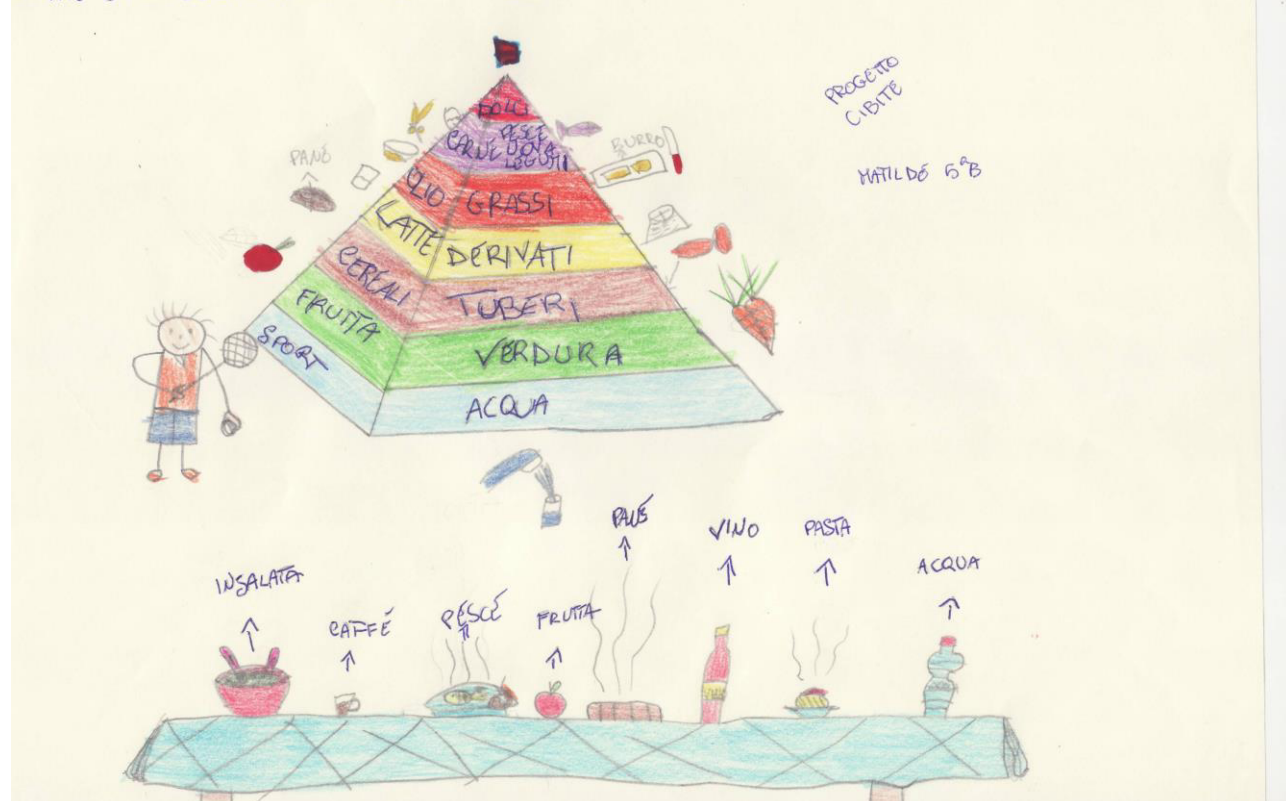 PROGETTO
CIBITE
MATILDE 5ªB
DOLCI
CARNE
PESCE
UOVA
LEGUMI
PANE
BURRO
OLIO GRASSI
LATTE DERIVATI
CEREALI TUBERI
FRUTTA VERDURA
SPORT ACQUA
INSALATA
CAFFÉ
PESCE
FRUTTA
PANE
VINO
PASTA
ACQUA